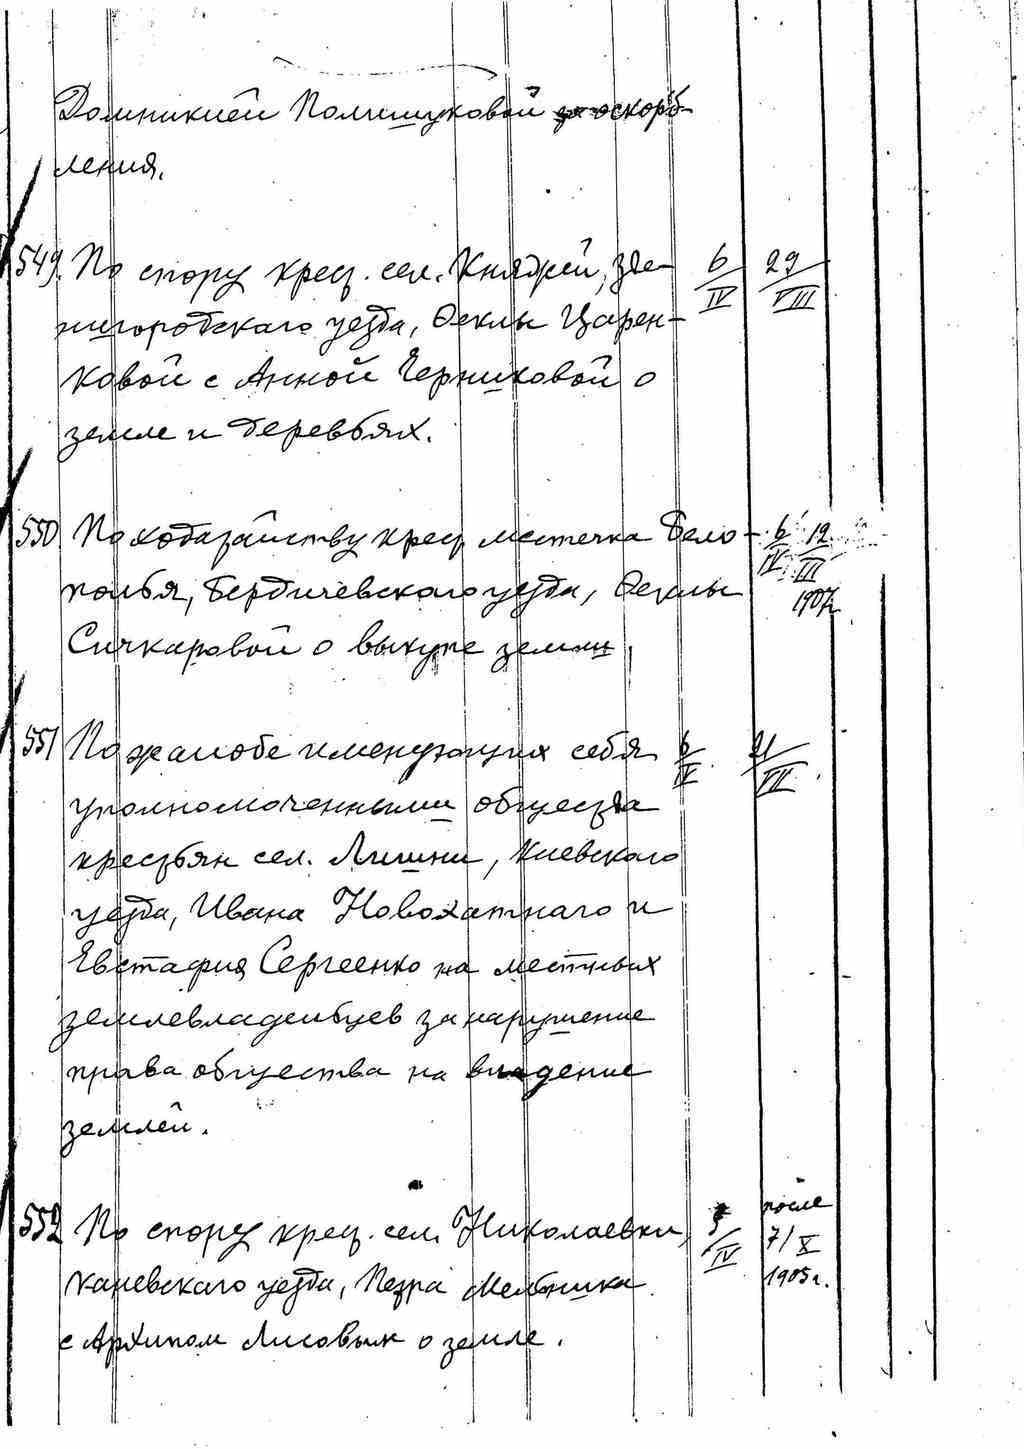 Домникией Полищуковой за оскорб-
ления.
549. По спору крест. сел. Княжей, Зве- 6/IV 29/VIII
нигородскаго уезда, Феклы Царен-
ковой с Анной Черниковой о
земле и деревьях.
550 По ходатайству крест. местечка Бело- 6/IV 12/III
полья, Бердичевскаго уезда, Феклы 1907г.
Сичкаровой о выкупе земли.
551 По жалобе именующих себя 6/IV. 21/VII.
уполномоченными общества
крестьян сел. Лишни, Киевскаго
уезда, Ивана Новохатнаго и
Евстафия Сергеенко на местных
землевладельцев за нарушение
права общества на владение
землей.
после
552 По спору крест. сел. Николаевки, /IV 7/X
Каневскаго уезда, Петра Мельника 1905г.
с Архипом Лисовым о земле.